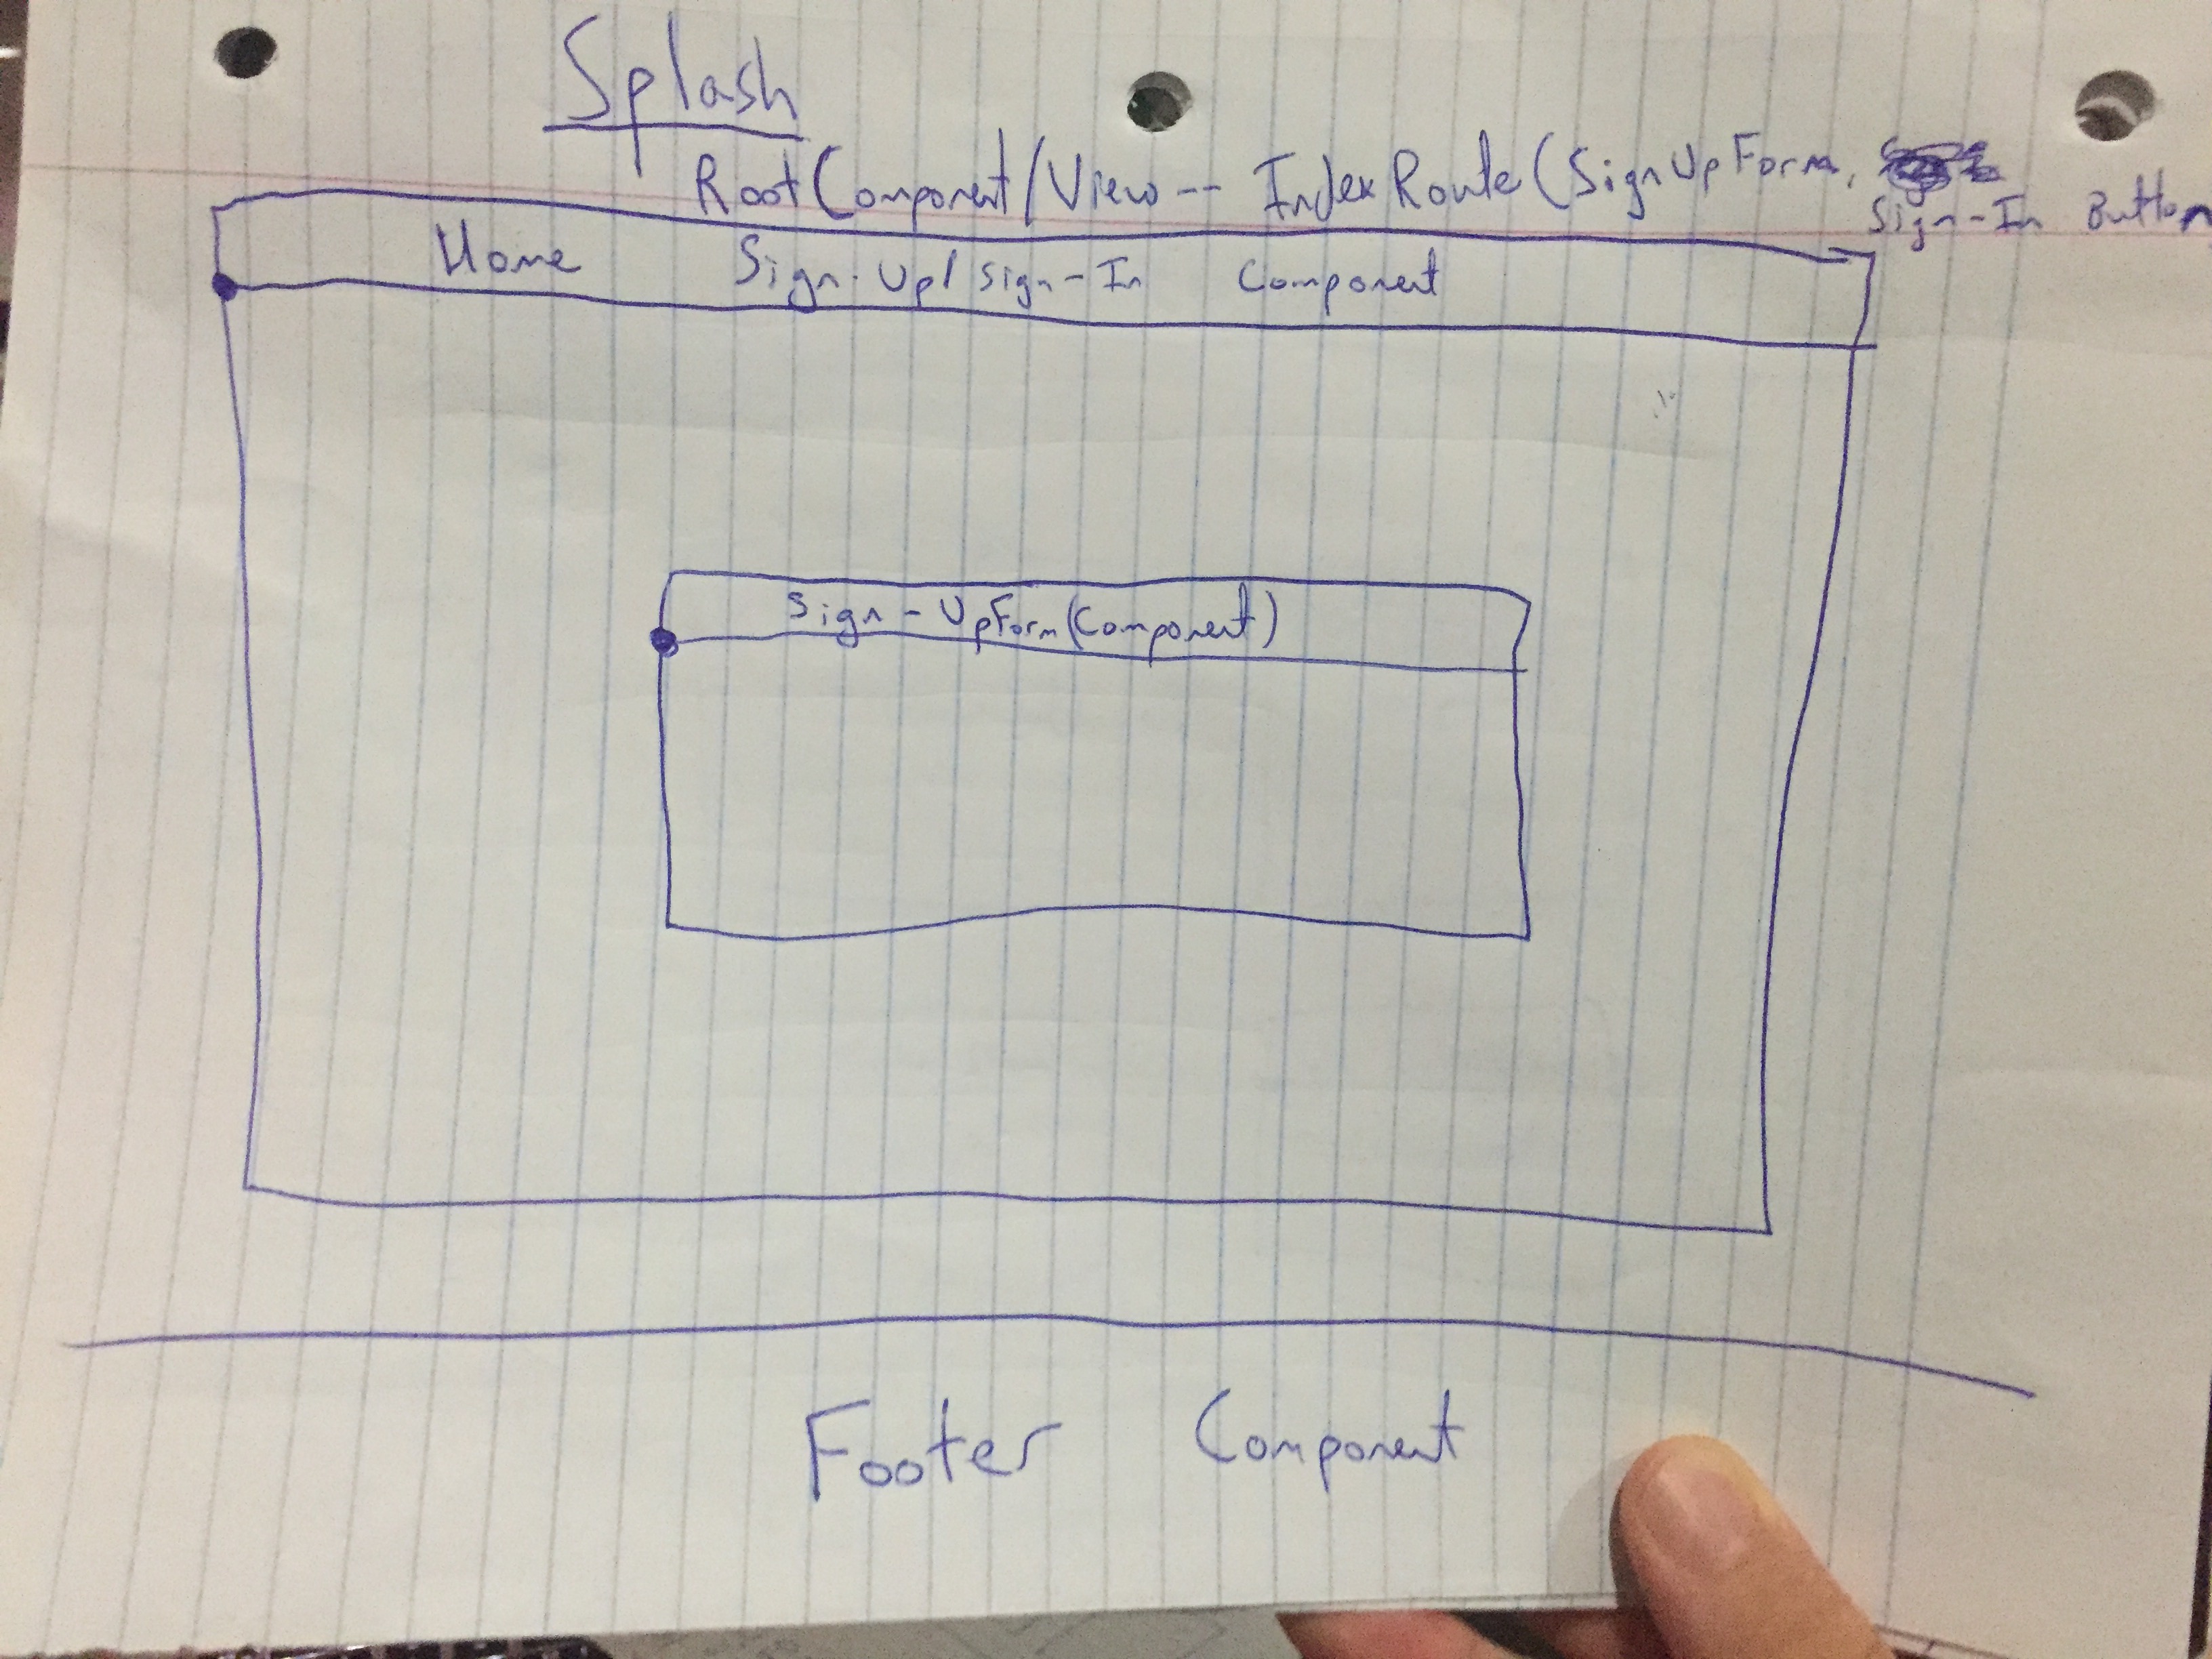 Splash
Root Component/View -- IndexRoute(SignUpForm,
Sign-In Button
Home Sign-Up/Sign-In Component
Sign-UpForm(Component)
Footer Component